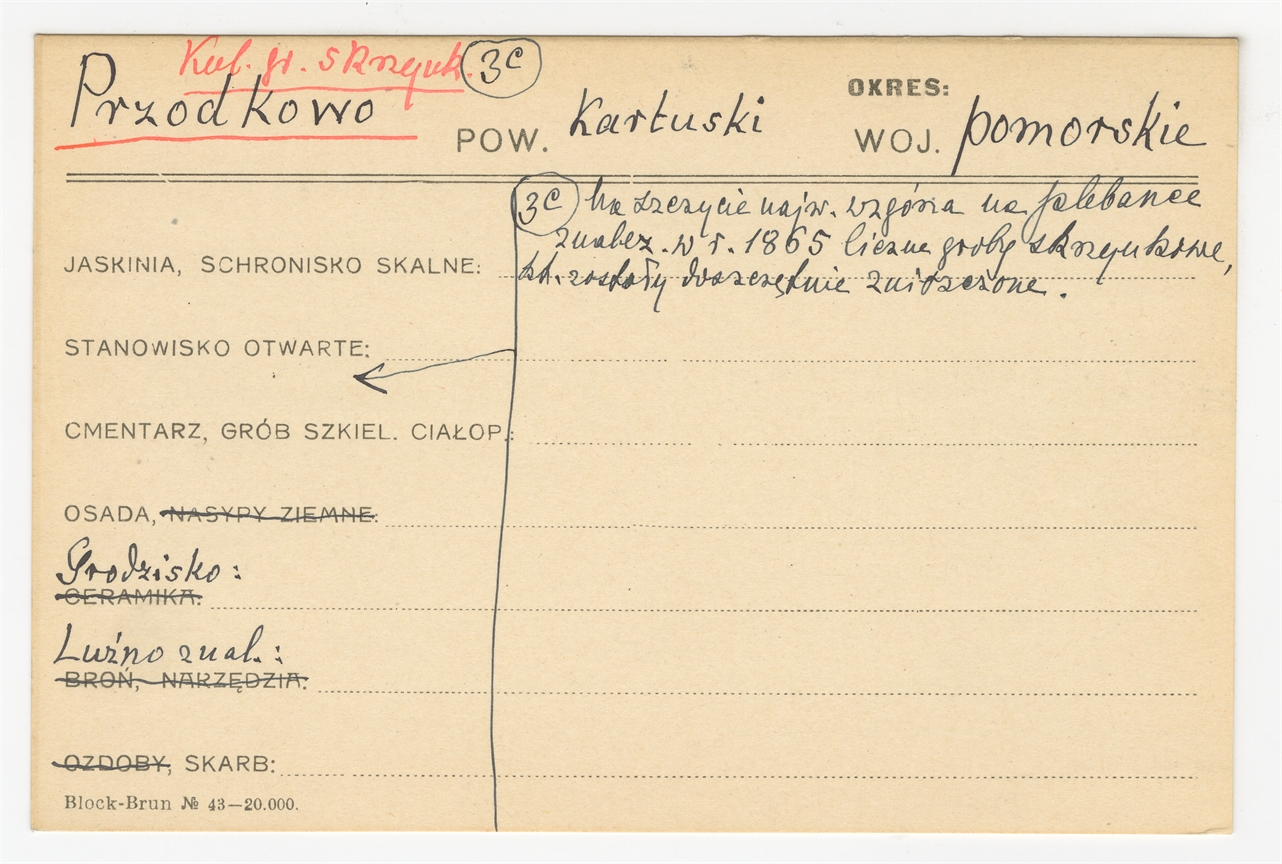 Kul. gr. skrzynk. 3c
Przodkowo
POW. Kartuski
OKRES:
WOJ. pomorskie
3c Na szczycie najw. wzgórza na plebance
znalez. w r. 1865 liczne groby skrzynkowe,
JASKINIA, SCHRONISKO SKALNE: kt. zostały doszczętnie zniszczone.
STANOWISKO OTWARTE:
CMENTARZ, GRÓB SZKIEL. CIAŁOP.:
OSADA, NASYPY ZIEMNE:
Grodzisko:
CERAMIKA:
Luźno znal.:
BROŃ, NARZĘDZIA:
OZDOBY, SKARB:
Block-Brun № 43—20.000.